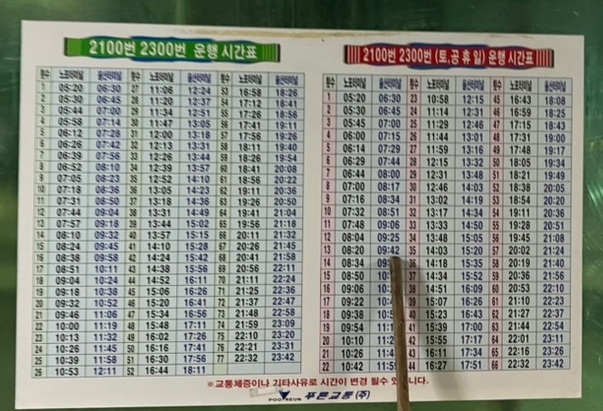 2100번 2300번 운행 시간표
횟수 노포터미널 울산터미널 횟수 노포터미널 울산터미널 횟수 노포터미널 울산터미널
1 05:20 06:30 27 11:06 12:24 53 16:58 18:26
2 05:30 06:45 28 11:20 12:37 54 17:12 18:41
3 05:44 07:00 29 11:34 12:51 55 17:26 18:56
4 05:58 07:14 30 11:47 13:05 56 17:41 19:11
5 06:12 07:28 31 12:00 13:18 57 17:56 19:26
6 06:26 07:42 32 12:13 13:31 58 18:11 19:40
7 06:39 07:56 33 12:26 13:44 59 18:26 19:54
8 06:52 08:10 34 12:39 13:57 60 18:41 20:08
9 07:05 08:23 35 12:52 14:10 61 18:56 20:22
10 07:18 08:36 36 13:05 14:23 62 19:11 20:36
11 07:31 08:50 37 13:18 14:36 63 19:26 20:50
12 07:44 09:04 38 13:31 14:49 64 19:41 21:04
13 07:57 09:18 39 13:44 15:02 65 19:56 21:18
14 08:10 09:32 40 13:57 15:15 66 20:11 21:32
15 08:24 09:45 41 14:10 15:28 67 20:26 21:45
16 08:38 09:58 42 14:24 15:42 68 20:41 21:58
17 08:51 10:11 43 14:38 15:56 69 20:56 22:11
18 09:04 10:24 44 14:52 16:11 70 21:11 22:24
19 09:18 10:38 45 15:06 16:26 71 21:25 22:36
20 09:32 10:52 46 15:20 16:41 72 21:37 22:47
21 09:46 11:06 47 15:34 16:56 73 21:48 22:58
22 10:00 11:19 48 15:48 17:11 74 21:59 23:09
23 10:13 11:32 49 16:02 17:26 75 22:10 23:20
24 10:26 11:45 50 16:16 17:41 76 22:21 23:31
25 10:39 11:58 51 16:30 17:56 77 22:32 23:42
26 10:53 12:11 52 16:44 18:11
2100번 2300번 (토,공휴일) 운행 시간표
횟수 노포터미널 울산터미널 횟수 노포터미널 울산터미널 횟수 노포터미널 울산터미널
1 05:20 06:30 23 10:58 12:15 45 16:43 18:08
2 05:30 06:45 24 11:14 12:31 46 16:59 18:25
3 05:45 07:00 25 11:29 12:46 47 17:15 18:43
4 06:00 07:15 26 11:44 13:01 48 17:31 19:00
5 06:14 07:29 27 11:59 13:16 49 17:48 19:17
6 06:29 07:44 28 12:15 13:32 50 18:05 19:34
7 06:44 08:00 29 12:31 13:48 51 18:21 19:49
8 07:00 08:17 30 12:46 14:03 52 18:38 20:05
9 07:16 08:34 31 13:02 14:19 53 18:54 20:20
10 07:32 08:51 32 13:17 14:34 54 19:11 20:36
11 07:48 09:06 33 13:33 12:50 55 19:28 20:51
12 08:04 09:25 34 13:48 15:05 56 19:45 21:08
13 08:20 09:42 35 14:03 15:20 57 20:02 21:24
14 08:34 14:18 15:35 58 20:19 21:40
15 08:50 14:34 15:52 59 20:36 21:56
16 09:06 38 14:51 16:09 60 20:53 22:10
17 09:22 39 15:07 16:26 61 21:10 22:23
18 09:38 15:23 16:43 62 21:27 22:37
19 09:54 15:39 17:00 63 21:44 22:54
20 10:10 11:2 15:55 17:17 64 22:01 23:11
21 10:26 11:4 16:11 17:34 65 22:16 23:26
22 10:42 11:5 44 16:27 17:51 66 22:32 23:42
※교통체증이나 기타사유로 시간이 변경 될수 있습니다.
POOREUN 푸른교통 (주)